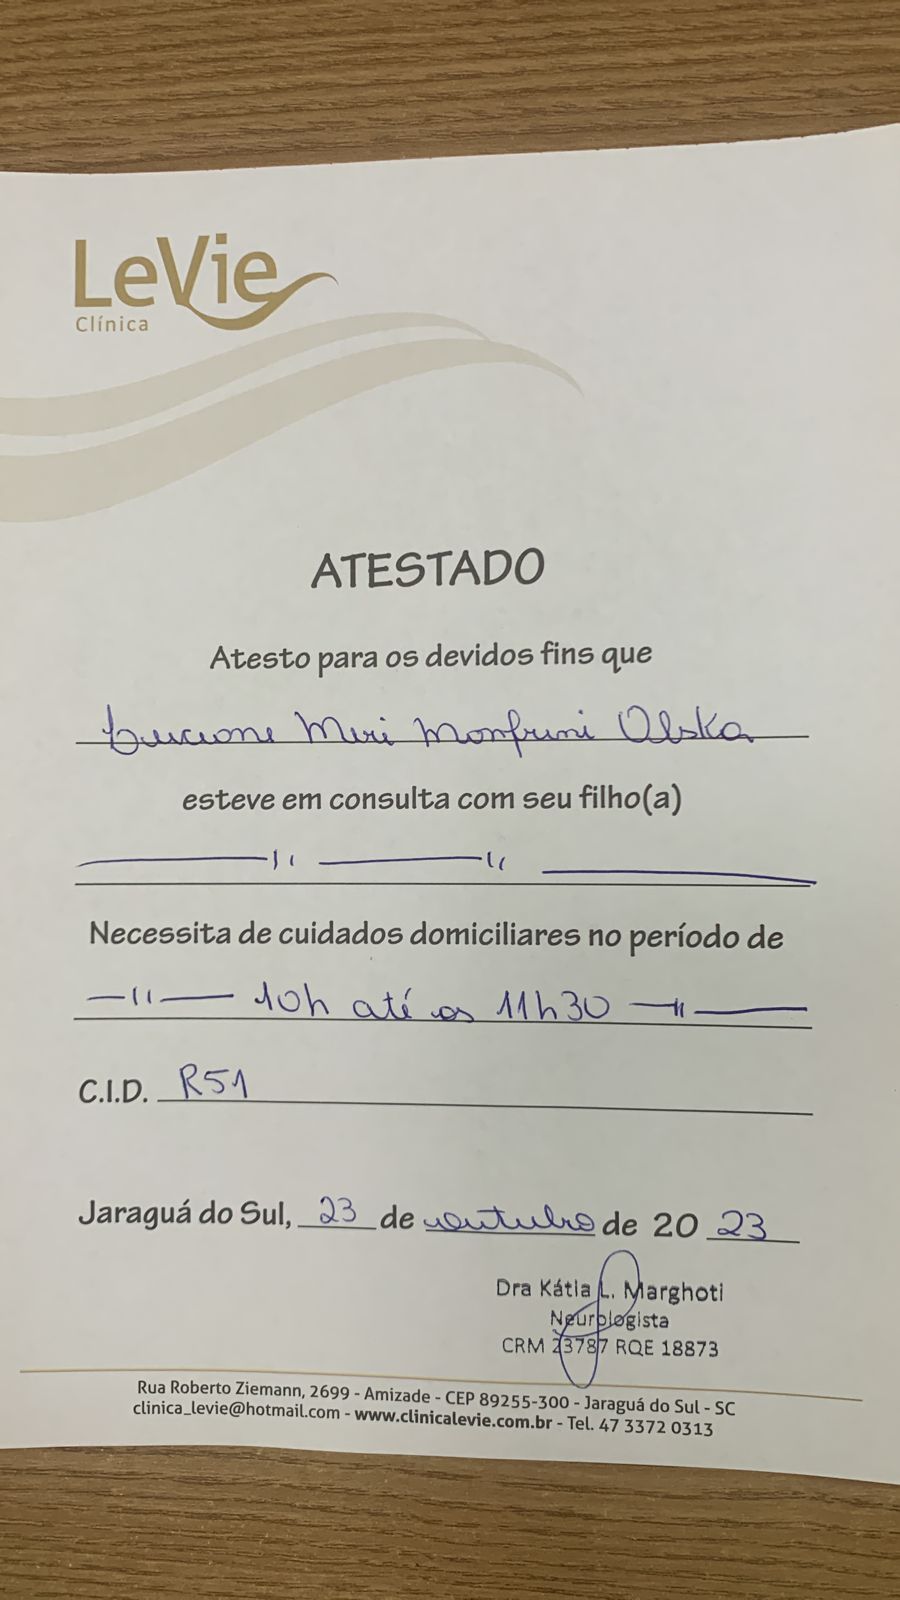 LeVie
Clínica
ATESTADO
Atesto para os devidos fins que
Meri Olska
esteve em consulta com seu filho(a)
Necessita de cuidados domiciliares no período de
10h até as 11h30
C.I.D. R51
Jaraguá do Sul, 23 de outubro de 20 23
Dra Kátia L. Marghoti
Neurologista
CRM 23787 RQE 18873
Rua Roberto Ziemann, 2699 - Amizade - CEP 89255-300 - Jaraguá do Sul - SC
clinica_levie@hotmail.com - www.clinicalevie.com.br - Tel. 47 3372 0313